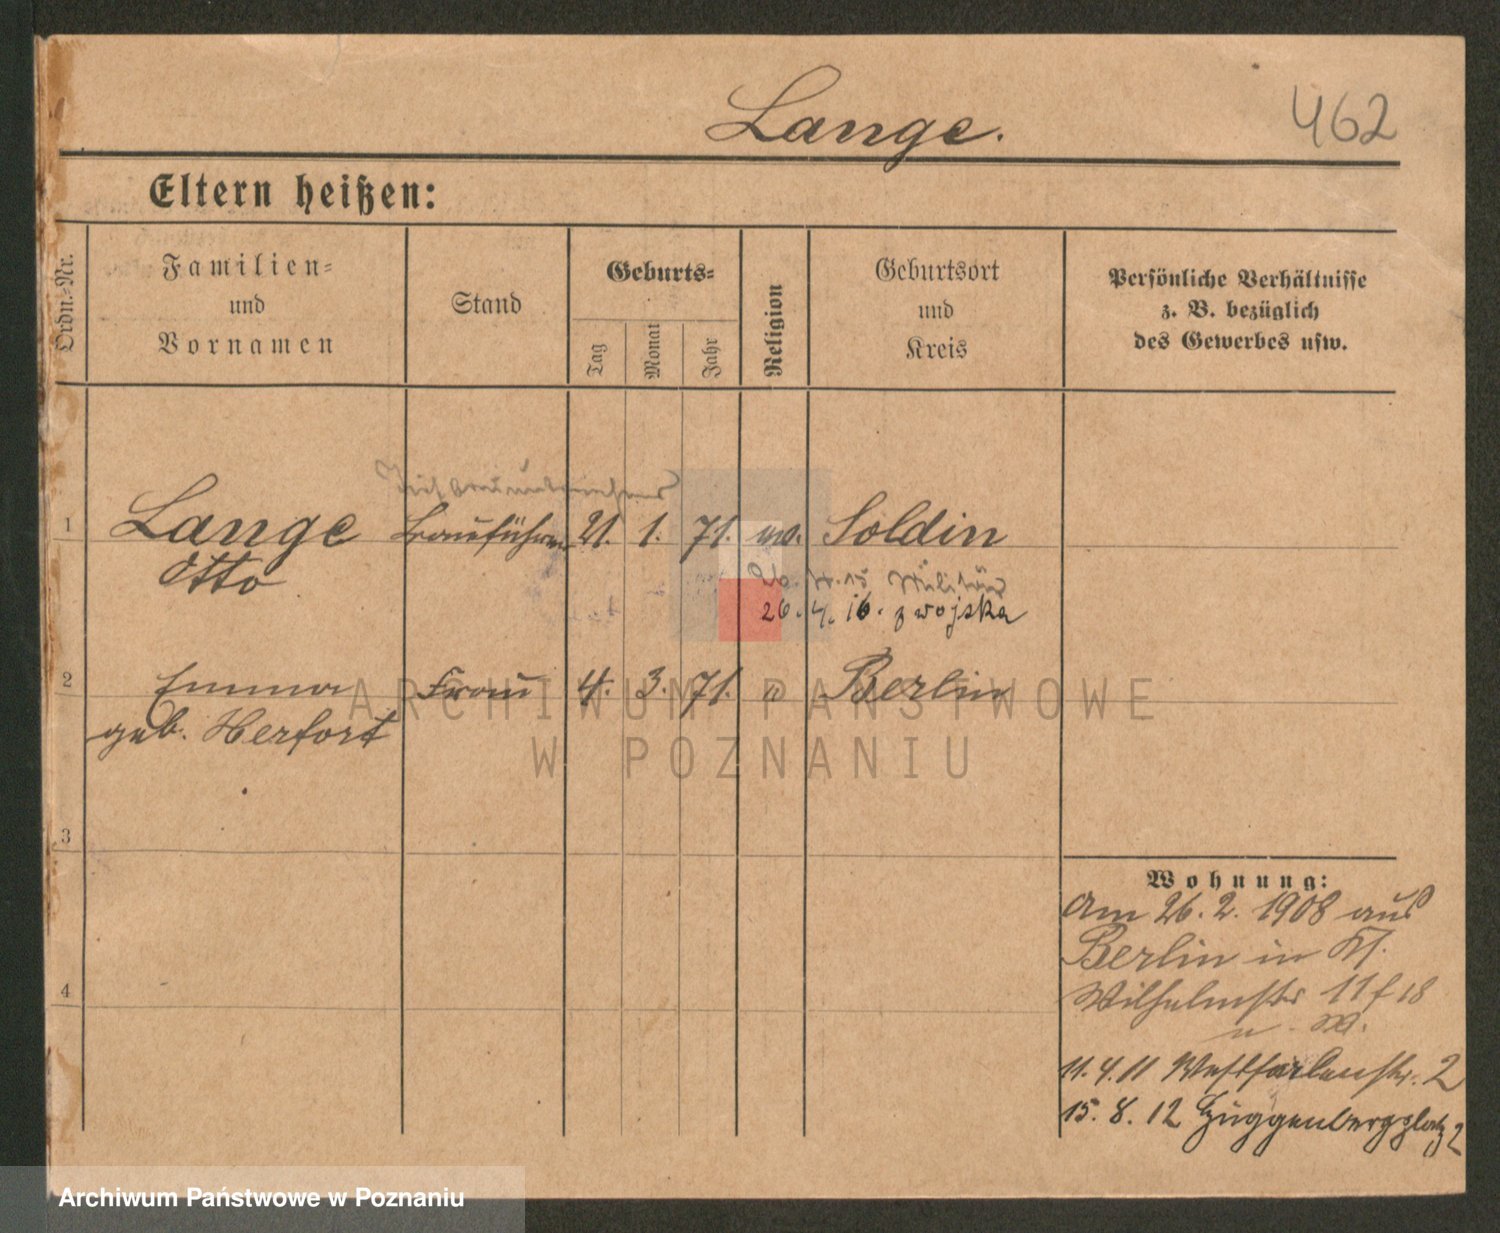 Lange.
462
Eltern heißen:
Ordn.-Nr.
Familien-
und
Vornamen
Stand
Geburts-
Tag
Monat
Jahr
Religion
Geburtsort
und
Kreis
Persönliche Verhältnisse
z. B. bezüglich
des Gewerbes usw.
1
Lange
Otto
Bauführer
21.
1.
71.
ev.
Soldin
Militär
26. 4. 16. z wojska
2
Emma
geb. Herfort
Frau
4.
3.
71.
"
Berlin
3
4
Wohnung:
Am 26. 2. 1908 aus
Berlin in
Wilhelmstr 18
11. 4. 11 Westfalenstr. 2
15. 8. 12 2
ARCHIWUM PAŃSTWOWE
W POZNANIU
Archiwum Państwowe w Poznaniu